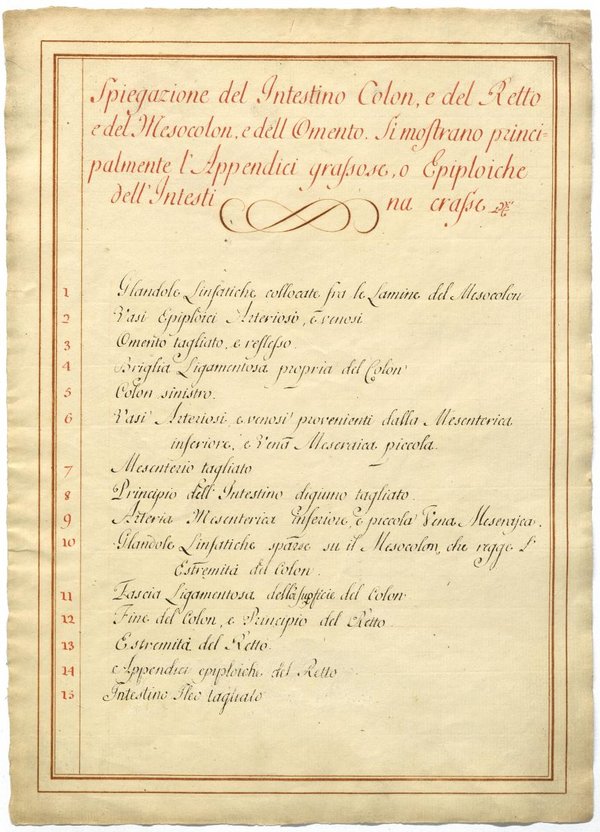 Spiegazione del Intestino Colon, e del Retto
e del Mesocolon, e dell Omento. Si mostrano princi=
palmente l'Appendici grassose, o Epiploiche
dell'Intesti na crasse
1 Glandole Linfatiche collocate fra le Lamine del Mesocolon
2 Vasi Epiploici Arteriosi, e venosi
3 Omento tagliato, e reflesso.
4 Briglia Ligamentosa propria del Colon
5 Colon sinistro.
6 Vasi Arteriosi, e venosi provenienti dalla Mesenterica
inferiore, e Vena Meseraica piccola.
7 Mesenterio tagliato
8 Principio dell'Intestino digiuno tagliato.
9 Arteria Mesenterica inferiore, e piccola Vena Meseraica.
10 Glandole Linfatiche sparse su il Mesocolon, che regge l'
Estremità del Colon.
11 Fascia Ligamentosa della supficie del Colon
12 Fine del Colon, e Principio del Retto
13 Estremità del Retto.
14 Appendici epiploiche del Retto
15 Intestino Ileo tagliato